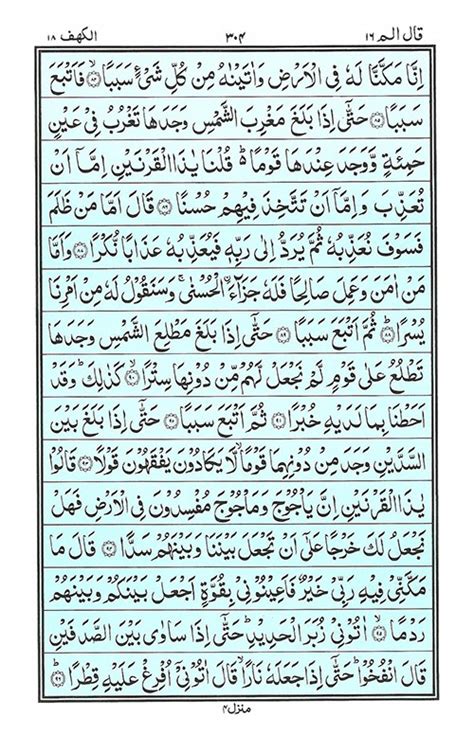 قال الم ١٦ ٣٠٤ الكهف ١٨
اِنَّا مَكَّنَّا لَهٗ فِى الْاَرْضِ وَاٰتَيْنٰهُ مِنْ كُلِّ شَىْءٍ سَبَبًا ۙ﴿٨٤﴾ فَاَتْبَعَ
سَبَبًا ﴿٨٥﴾ حَتّٰٓى اِذَا بَلَغَ مَغْرِبَ الشَّمْسِ وَجَدَهَا تَغْرُبُ فِىْ عَيْنٍ
حَمِئَةٍ وَّوَجَدَ عِنْدَهَا قَوْمًا ؕ قُلْنَا يٰذَا الْقَرْنَيْنِ اِمَّاۤ اَنْ
تُعَذِّبَ وَاِمَّاۤ اَنْ تَتَّخِذَ فِيْهِمْ حُسْنًا ﴿٨٦﴾ قَالَ اَمَّا مَنْ ظَلَمَ
فَسَوْفَ نُعَذِّبُهٗ ثُمَّ يُرَدُّ اِلٰى رَبِّهٖ فَيُعَذِّبُهٗ عَذَابًا نُّكْرًا ﴿٨٧﴾ وَاَمَّا
مَنْ اٰمَنَ وَعَمِلَ صَالِحًا فَلَهٗ جَزَآءَ اۨلْحُسْنٰى ۚ وَسَنَقُوْلُ لَهٗ مِنْ اَمْرِنَا
يُسْرًا ؕ﴿٨٨﴾ ثُمَّ اَتْبَعَ سَبَبًا ﴿٨٩﴾ حَتّٰٓى اِذَا بَلَغَ مَطْلِعَ الشَّمْسِ وَجَدَهَا
تَطْلُعُ عَلٰى قَوْمٍ لَّمْ نَجْعَلْ لَّهُمْ مِّنْ دُوْنِهَا سِتْرًا ۙ﴿٩٠﴾ كَذٰلِكَ ؕ وَقَدْ
اَحَطْنَا بِمَا لَدَيْهِ خُبْرًا ﴿٩١﴾ ثُمَّ اَتْبَعَ سَبَبًا ﴿٩٢﴾ حَتّٰٓى اِذَا بَلَغَ بَيْنَ
السَّدَّيْنِ وَجَدَ مِنْ دُوْنِهِمَا قَوْمًا ۙ لَّا يَكَادُوْنَ يَفْقَهُوْنَ قَوْلًا ﴿٩٣﴾ قَالُوْا
يٰذَا الْقَرْنَيْنِ اِنَّ يَاْجُوْجَ وَمَاْجُوْجَ مُفْسِدُوْنَ فِى الْاَرْضِ فَهَلْ
نَجْعَلُ لَكَ خَرْجًا عَلٰٓى اَنْ تَجْعَلَ بَيْنَنَا وَبَيْنَهُمْ سَدًّا ﴿٩٤﴾ قَالَ مَا
مَكَّنِّىْ فِيْهِ رَبِّىْ خَيْرٌ فَاَعِيْنُوْنِىْ بِقُوَّةٍ اَجْعَلْ بَيْنَكُمْ وَبَيْنَهُمْ
رَدْمًا ۙ﴿٩٥﴾ اٰتُوْنِىْ زُبَرَ الْحَدِيْدِ ؕ حَتّٰٓى اِذَا سَاوٰى بَيْنَ الصَّدَفَيْنِ
قَالَ انْفُخُوْا ؕ حَتّٰٓى اِذَا جَعَلَهٗ نَارًا ۙ قَالَ اٰتُوْنِىْۤ اُفْرِغْ عَلَيْهِ قِطْرًا ؕ﴿٩٦﴾
منزل ٤